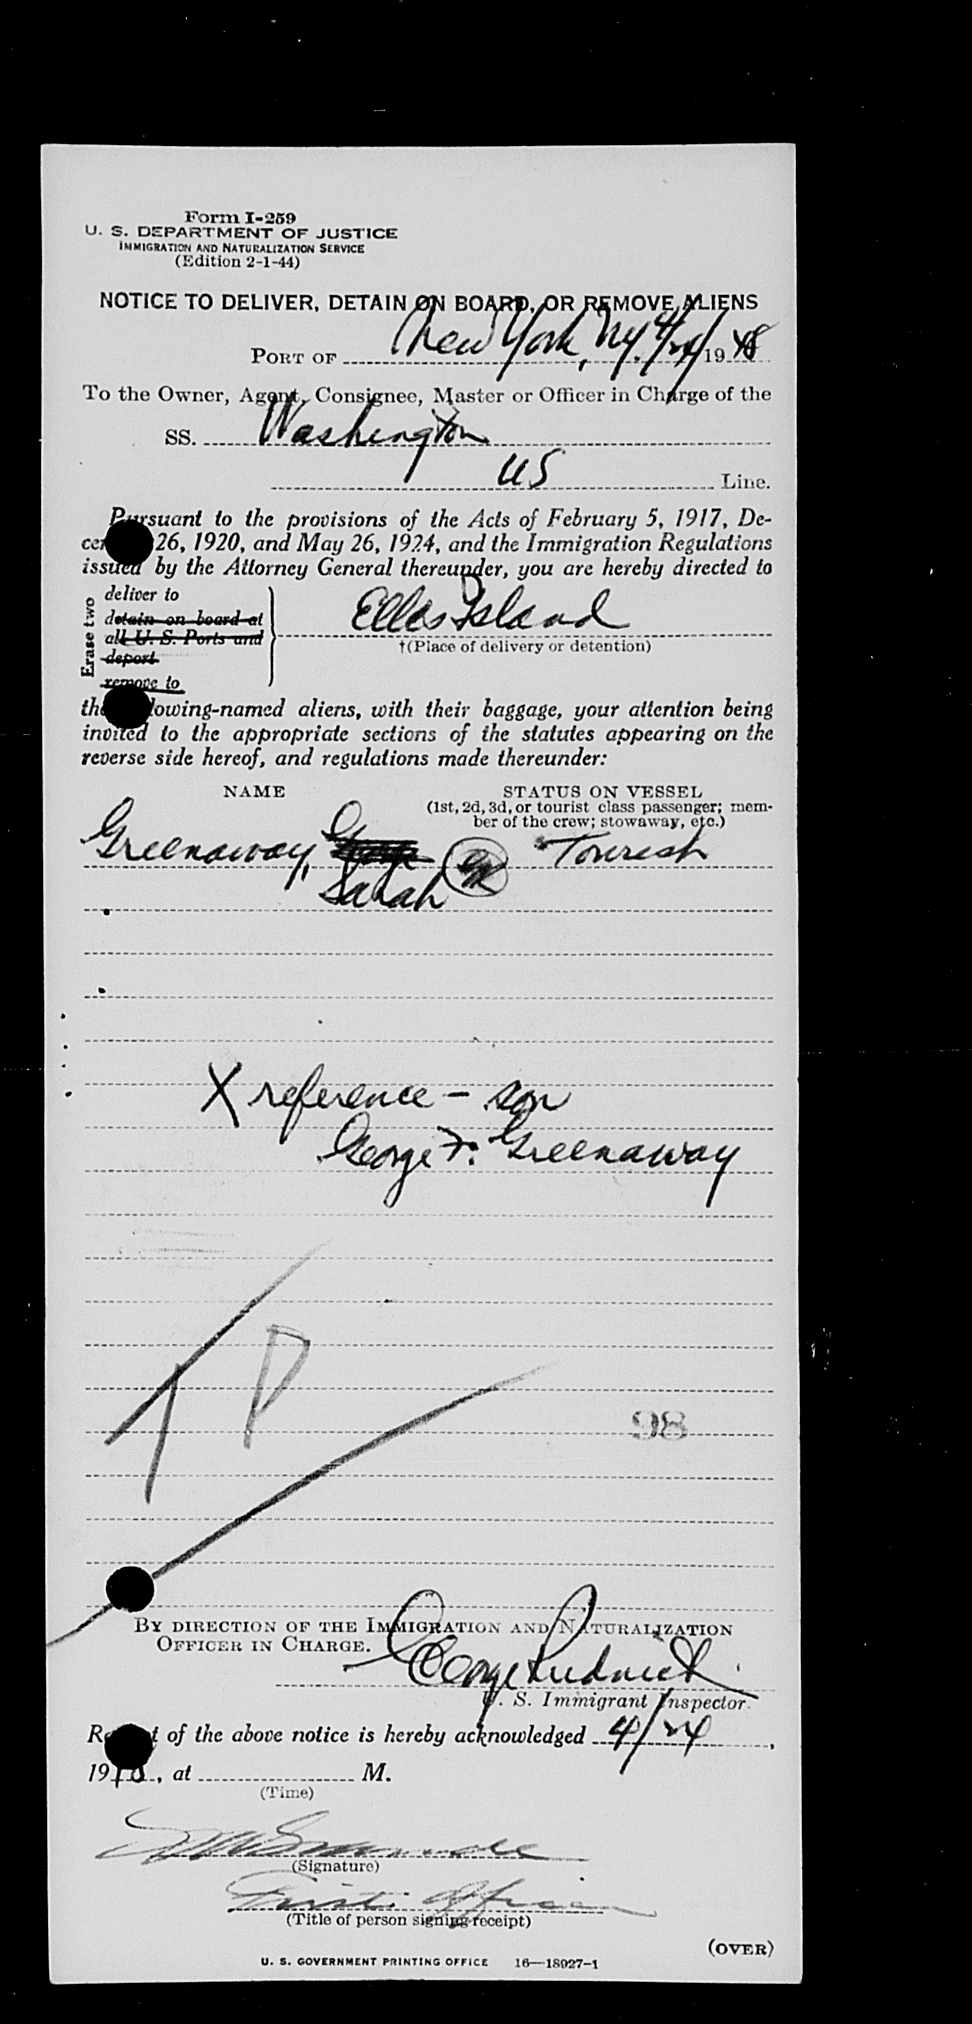 Form I-259
U. S. DEPARTMENT OF JUSTICE
IMMIGRATION AND NATURALIZATION SERVICE
(Edition 2-1-44)
NOTICE TO DELIVER, DETAIN ON BOARD, OR REMOVE ALIENS
PORT OF New York, Ny. 4/24/1948
To the Owner, Agent, Consignee, Master or Officer in Charge of the
SS. Washington
US Line.
Pursuant to the provisions of the Acts of February 5, 1917, De-
cem 26, 1920, and May 26, 1924, and the Immigration Regulations
issued by the Attorney General thereunder, you are hereby directed to
Erase two
deliver to
detain on board at
all U. S. Ports and
deport
remove to
Ellis Island
†(Place of delivery or detention)
the lowing-named aliens, with their baggage, your attention being
invited to the appropriate sections of the statutes appearing on the
reverse side hereof, and regulations made thereunder:
NAME STATUS ON VESSEL
(1st, 2d, 3d, or tourist class passenger; mem-
ber of the crew; stowaway, etc.)
Greenaway, George Tourist
Sarah
X reference - son
George F. Greenaway
T P
98
BY DIRECTION OF THE IMMIGRATION AND NATURALIZATION
OFFICER IN CHARGE.
George Rudnick
U. S. Immigrant Inspector.
Re t of the above notice is hereby acknowledged 4/24,
1948, at M.
(Time)
(Signature)
First Officer
(Title of person signing receipt)
(OVER)
U. S. GOVERNMENT PRINTING OFFICE 16—18927-1